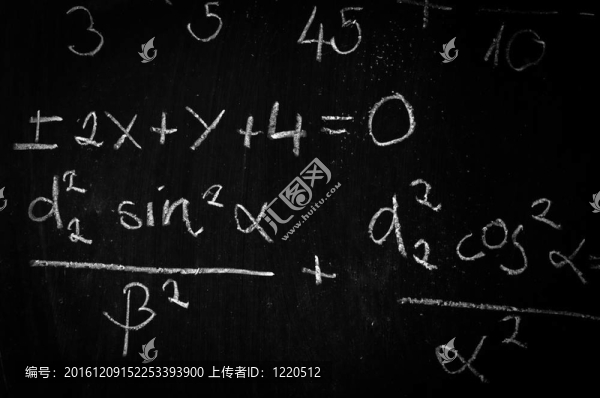 3 5 45 + 10
± 2x + y + 4 = 0
d₂² sin² α / β² + d₂² cos² α / α²
汇图网
www.huitu.com
编号：20161209152253393900 上传者ID：1220512